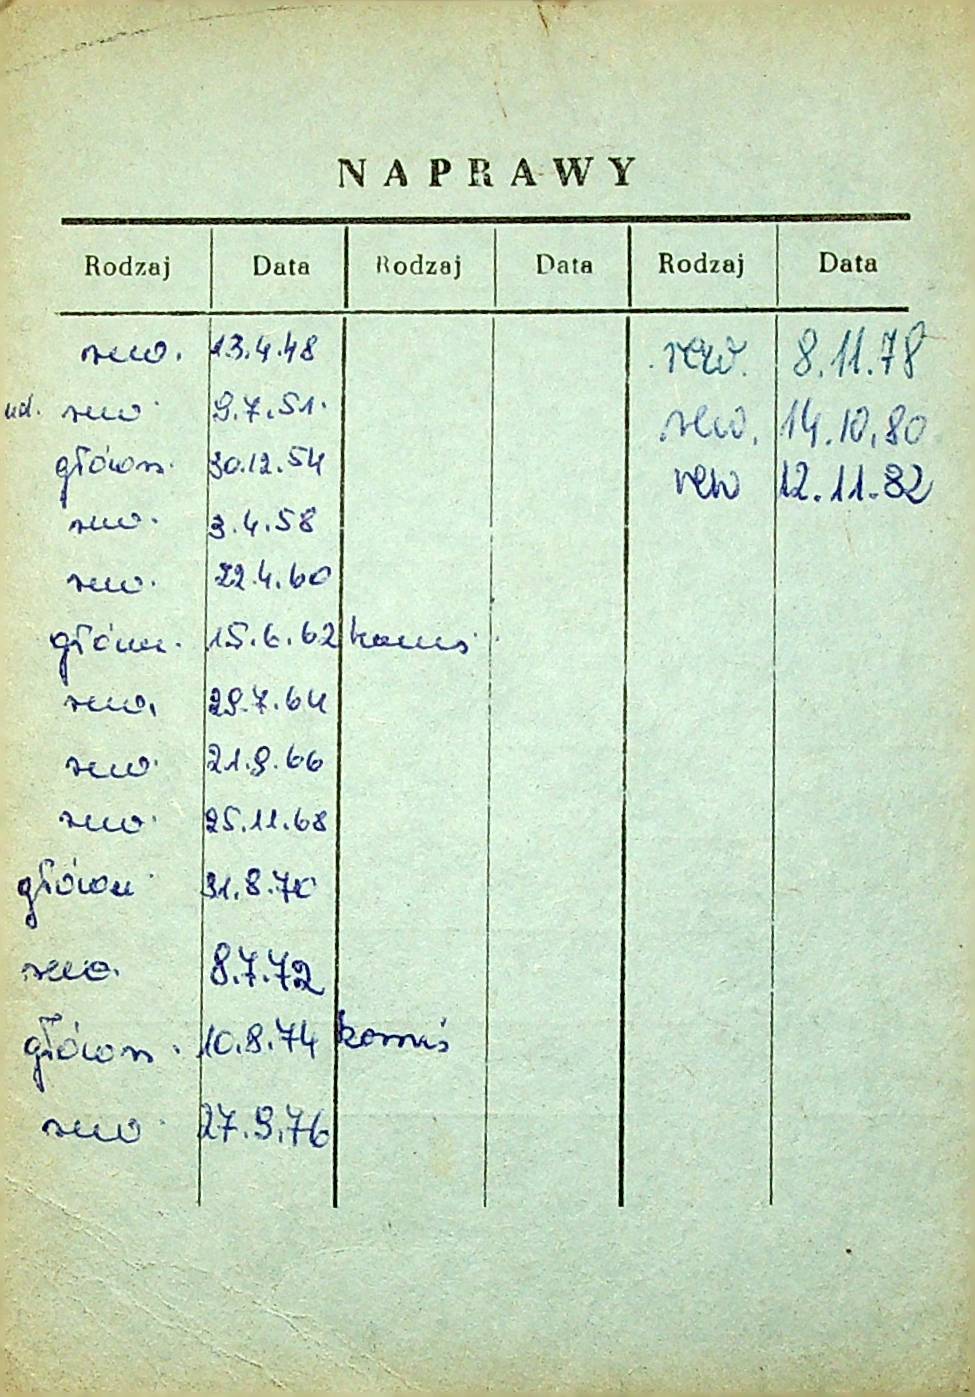 NAPRAWY
Rodzaj Data Rodzaj Data Rodzaj Data
rew. 13.4.48 rew. 8.11.78
ud. rew. 9.7.51. rew. 14.10.80
główn. 30.12.54 rew 12.11.82
rew. 3.4.58
rew. 22.4.60
główn. 15.6.62 komis
rew. 29.7.64
rew. 21.9.66
rew. 25.11.68
główn 31.8.70
rew. 8.7.72
główn. 10.8.74 komis
rew 27.9.76